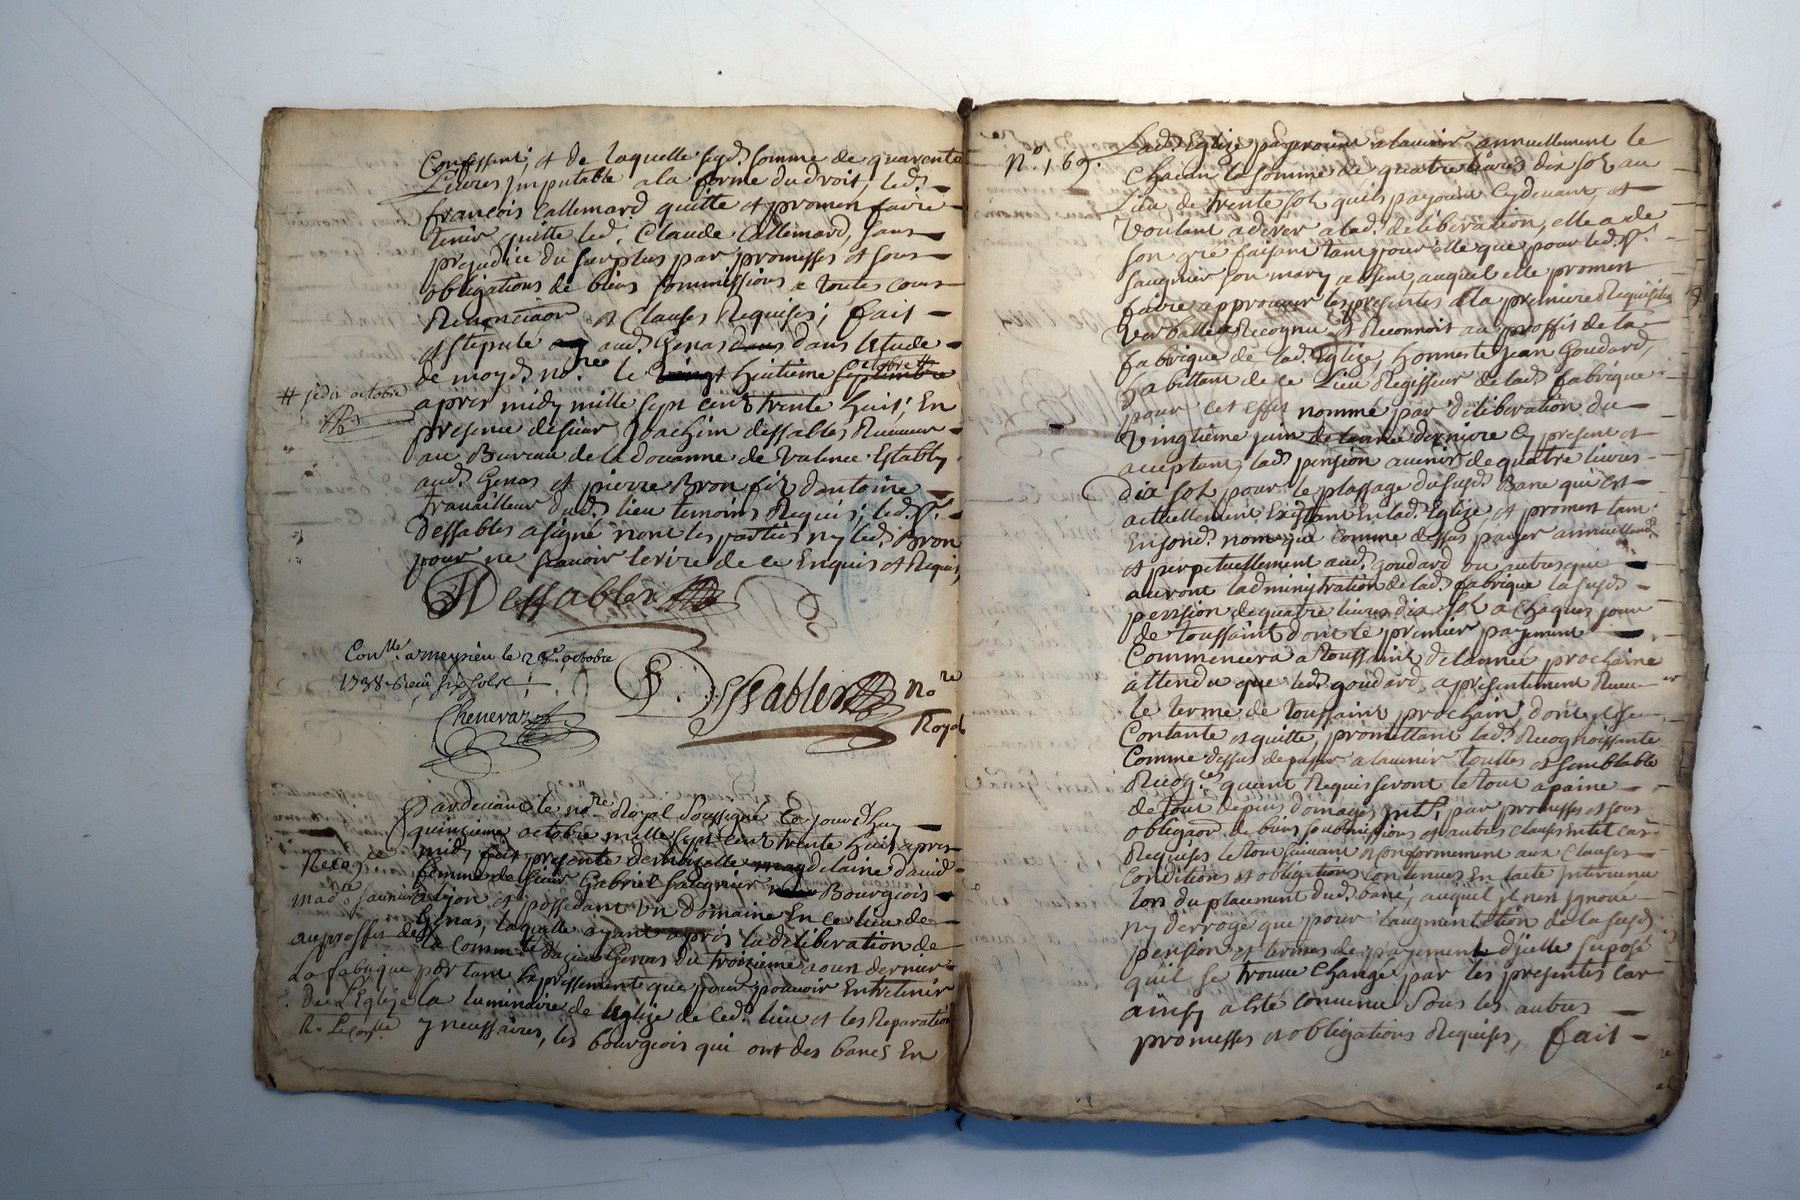 Confessant; et de laquelle susd. somme de quarante
Livres imputable a la forme du droit, led.
françois Callemard quitte et promen faire
tenir quitte led. Claude Callemard, sans
prejudice du surplus par promesses et sous
obligations de biens soumissions a toutes cours
Renonciaon et Clauses Requises; fait
et stipulé aud. Genas dans l'etude
de moyd. no.re le huitieme octobre
# je dis octobre
apres midy mille sept cent trente huit; En
presence de sieur Joachim dessables Receveur
au Bureau de la douanne de Valence Estably
aud. Genas et pierre Bron fils d'antoine
travailleur dud. lieu temoins Requis; led. Sr.
Dessables a signé non les parties ny led. Bron
pour ne sçavoir écrire de ce Enquis et Requis,
Dessables
Con.llé a meysieu le octobre
1738 Receu six sols
Chenevaz
Dessables no.re
Royal
Pardevant le no.re Royal soussigné Ce jourd'huy
quinzieme octobre mille sept cent trente huit apres
midy, fut presente demoiselle claine david
femme de sieur Gabriel saugnier Bourgeois
a lyon et possedant un domaine En ce lieu de
Genas, laquelle ayant apris la deliberation de
la Comm.té dud. Genas du troisieme aoust dernier
portant Expressement que pour pouvoir Entretenir
la luminaire de l'eglise de ced. lieu et les Reparations
y necessaires, les bourgeois qui ont des bancs En
Recog.ce
mad.e saunier
au proffit de
La fabrique
De L'Eglise
N.o 169.
Lad. Eglise payeroient a l'avenir annuellement le
Chacun la somme de quatre livres dix sol au
Lieu de trente sol qu'ils payoient Cydevant, et
Voulant aderer a lad. deliberation, elle a de
son gré faisant tant pour elle que pour led. Sr.
saugnier son mary absent, auquel elle promen
faire approuver les presentes a la premiere Requisition
verballe a Recognu et Reconnoit au proffit de la
fabrique de lad. Eglise, honneste jean Goudard,
habittant de ce Lieu Regisseur de lad. fabrique
pour cet effet nommé par deliberation du
vingtieme juin de l'année derniere Cy present et
aceptant, lad. pension annuelle de quatre livres
dix sol, pour le plassage du susd. Banc qui est
actuellement Existant En lad. Eglise, et promen tant
En sond. nom que comme dessus payer annuellem.t
et perpetuellement aud. goudard ou autres qui
auront l'administration de lad. fabrique la susd.
pension de quatre livres dix sol a Chaques jour
de toussaint dont le premier payement
Commencera a toussaint de l'année prochaine
attendu que led. goudard a presentement Receu
le terme de toussaint prochain, dont il se
Contante et quitte, promettant lad. Recognoissante
Comme dessus de passer a l'avenir touttes et semblable
Recog.ces quant Requis seront le tout a paine
de tout depens domages int.s, par promesses et sous
obligaon de biens soubmissions et autres clauses
Requises le tout suivant et conformement aux Clauses
Conditions et obligations contenues En l'acte intervenu
lors du placement dud. banc; auquel il n'est innové
ny derrogé que pour l'augmentation de la susd.
pension et termes de payement d'jcelle suposé
qu'il se trouve changé par les presentes car
ainsy a esté convenu sous les autres
promesses et obligations Requises, fait